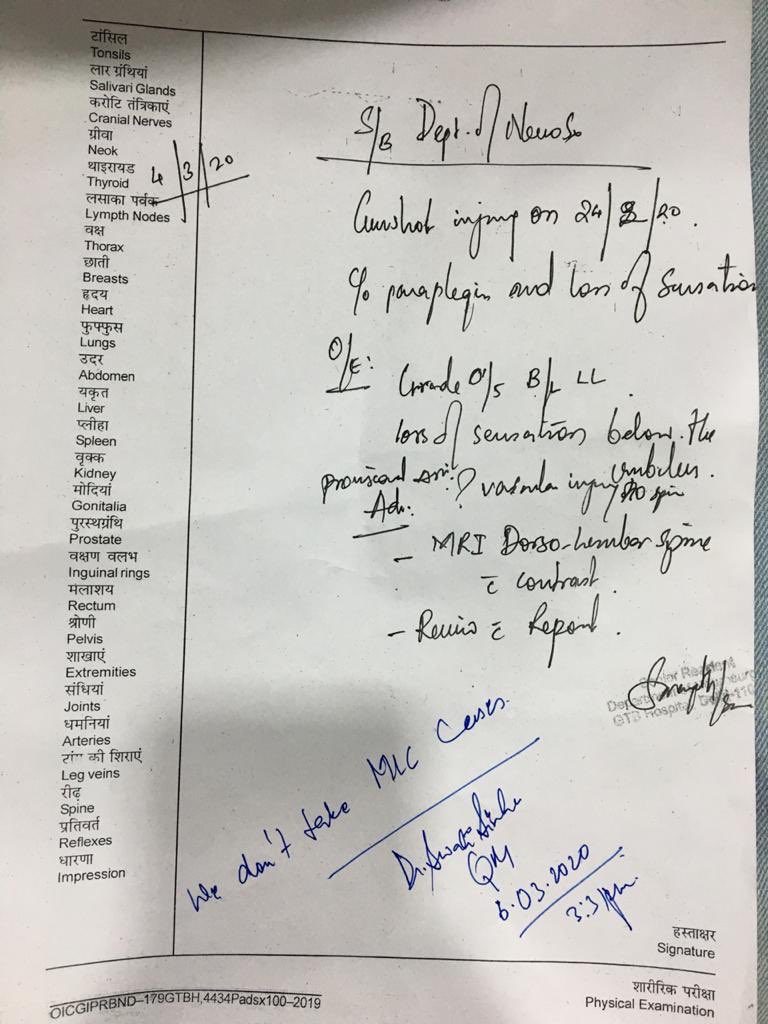 टांसिल
Tonsils
लार ग्रंथियां
Salivari Glands
करोटि तंत्रिकाएं
Cranial Nerves
ग्रीवा
Neok
थाइरायड
Thyroid
लसाका पर्वक
Lympth Nodes
वक्ष
Thorax
छाती
Breasts
हृदय
Heart
फुफ्फुस
Lungs
उदर
Abdomen
यकृत
Liver
प्लीहा
Spleen
वृक्क
Kidney
मोदियां
Gonitalia
पुरस्थग्रंथि
Prostate
वक्षण वलभ
Inguinal rings
मलाशय
Rectum
श्रोणी
Pelvis
शाखाएं
Extremities
संधियां
Joints
धमनियां
Arteries
की शिराएं
Leg veins
रीढ़
Spine
प्रतिवर्त
Reflexes
धारणा
Impression
4/3/20
S/B Dept. of NeuroSx
Gunshot injury on 24/2/20.
c/o paraplegia and loss of sensation
O/E:
Grade 0/5 B/L LL
loss of sensation below the
umbilicus.
? vascular injury to spine
Adv:
- MRI Dorso-lumbar spine
c̄ contrast.
- Review c̄ Report.
Senior Resident
GTB Hospital
We don't take MLC Cases.
Dr. Swati Sinha
6.03.2020
हस्ताक्षर
Signature
शारीरिक परीक्षा
Physical Examination
OICGIPRBND–179GTBH,4434Padsx100–2019